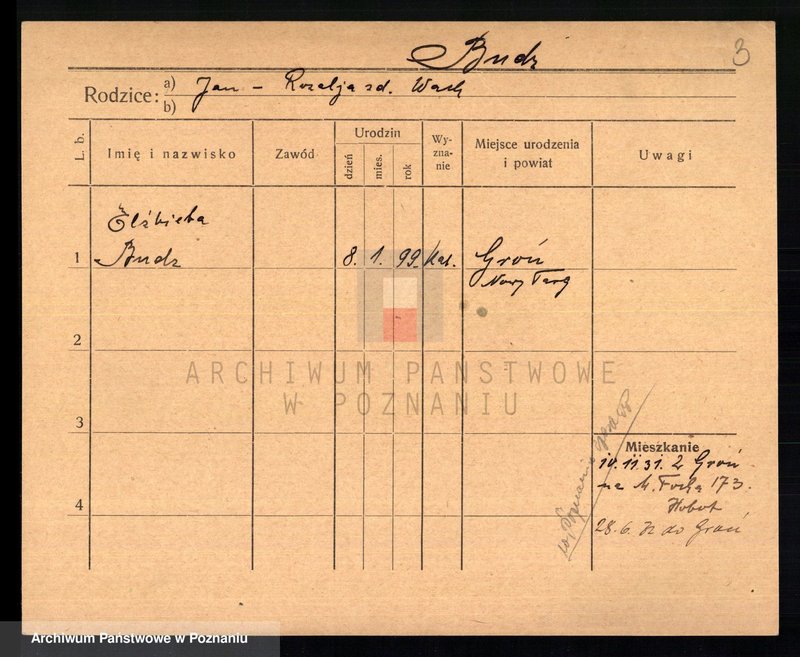 Budz
3
Rodzice: a) b) Jan – Rozalja zd. Wach
L. b.
Imię i nazwisko
Zawód
Urodzin
dzień
mies.
rok
Wy-
zna-
nie
Miejsce urodzenia
i powiat
Uwagi
Elżbieta
1 Budz 8. 1. 99. kat. Groń
Nowy Targ
2
ARCHIWUM PAŃSTWOWE
W POZNANIU
3
Mieszkanie
10.11.31. z Groń
na M. Focha 173.
Hobot
4
28.6.32 do Groń
w Poznaniu
Archiwum Państwowe w Poznaniu